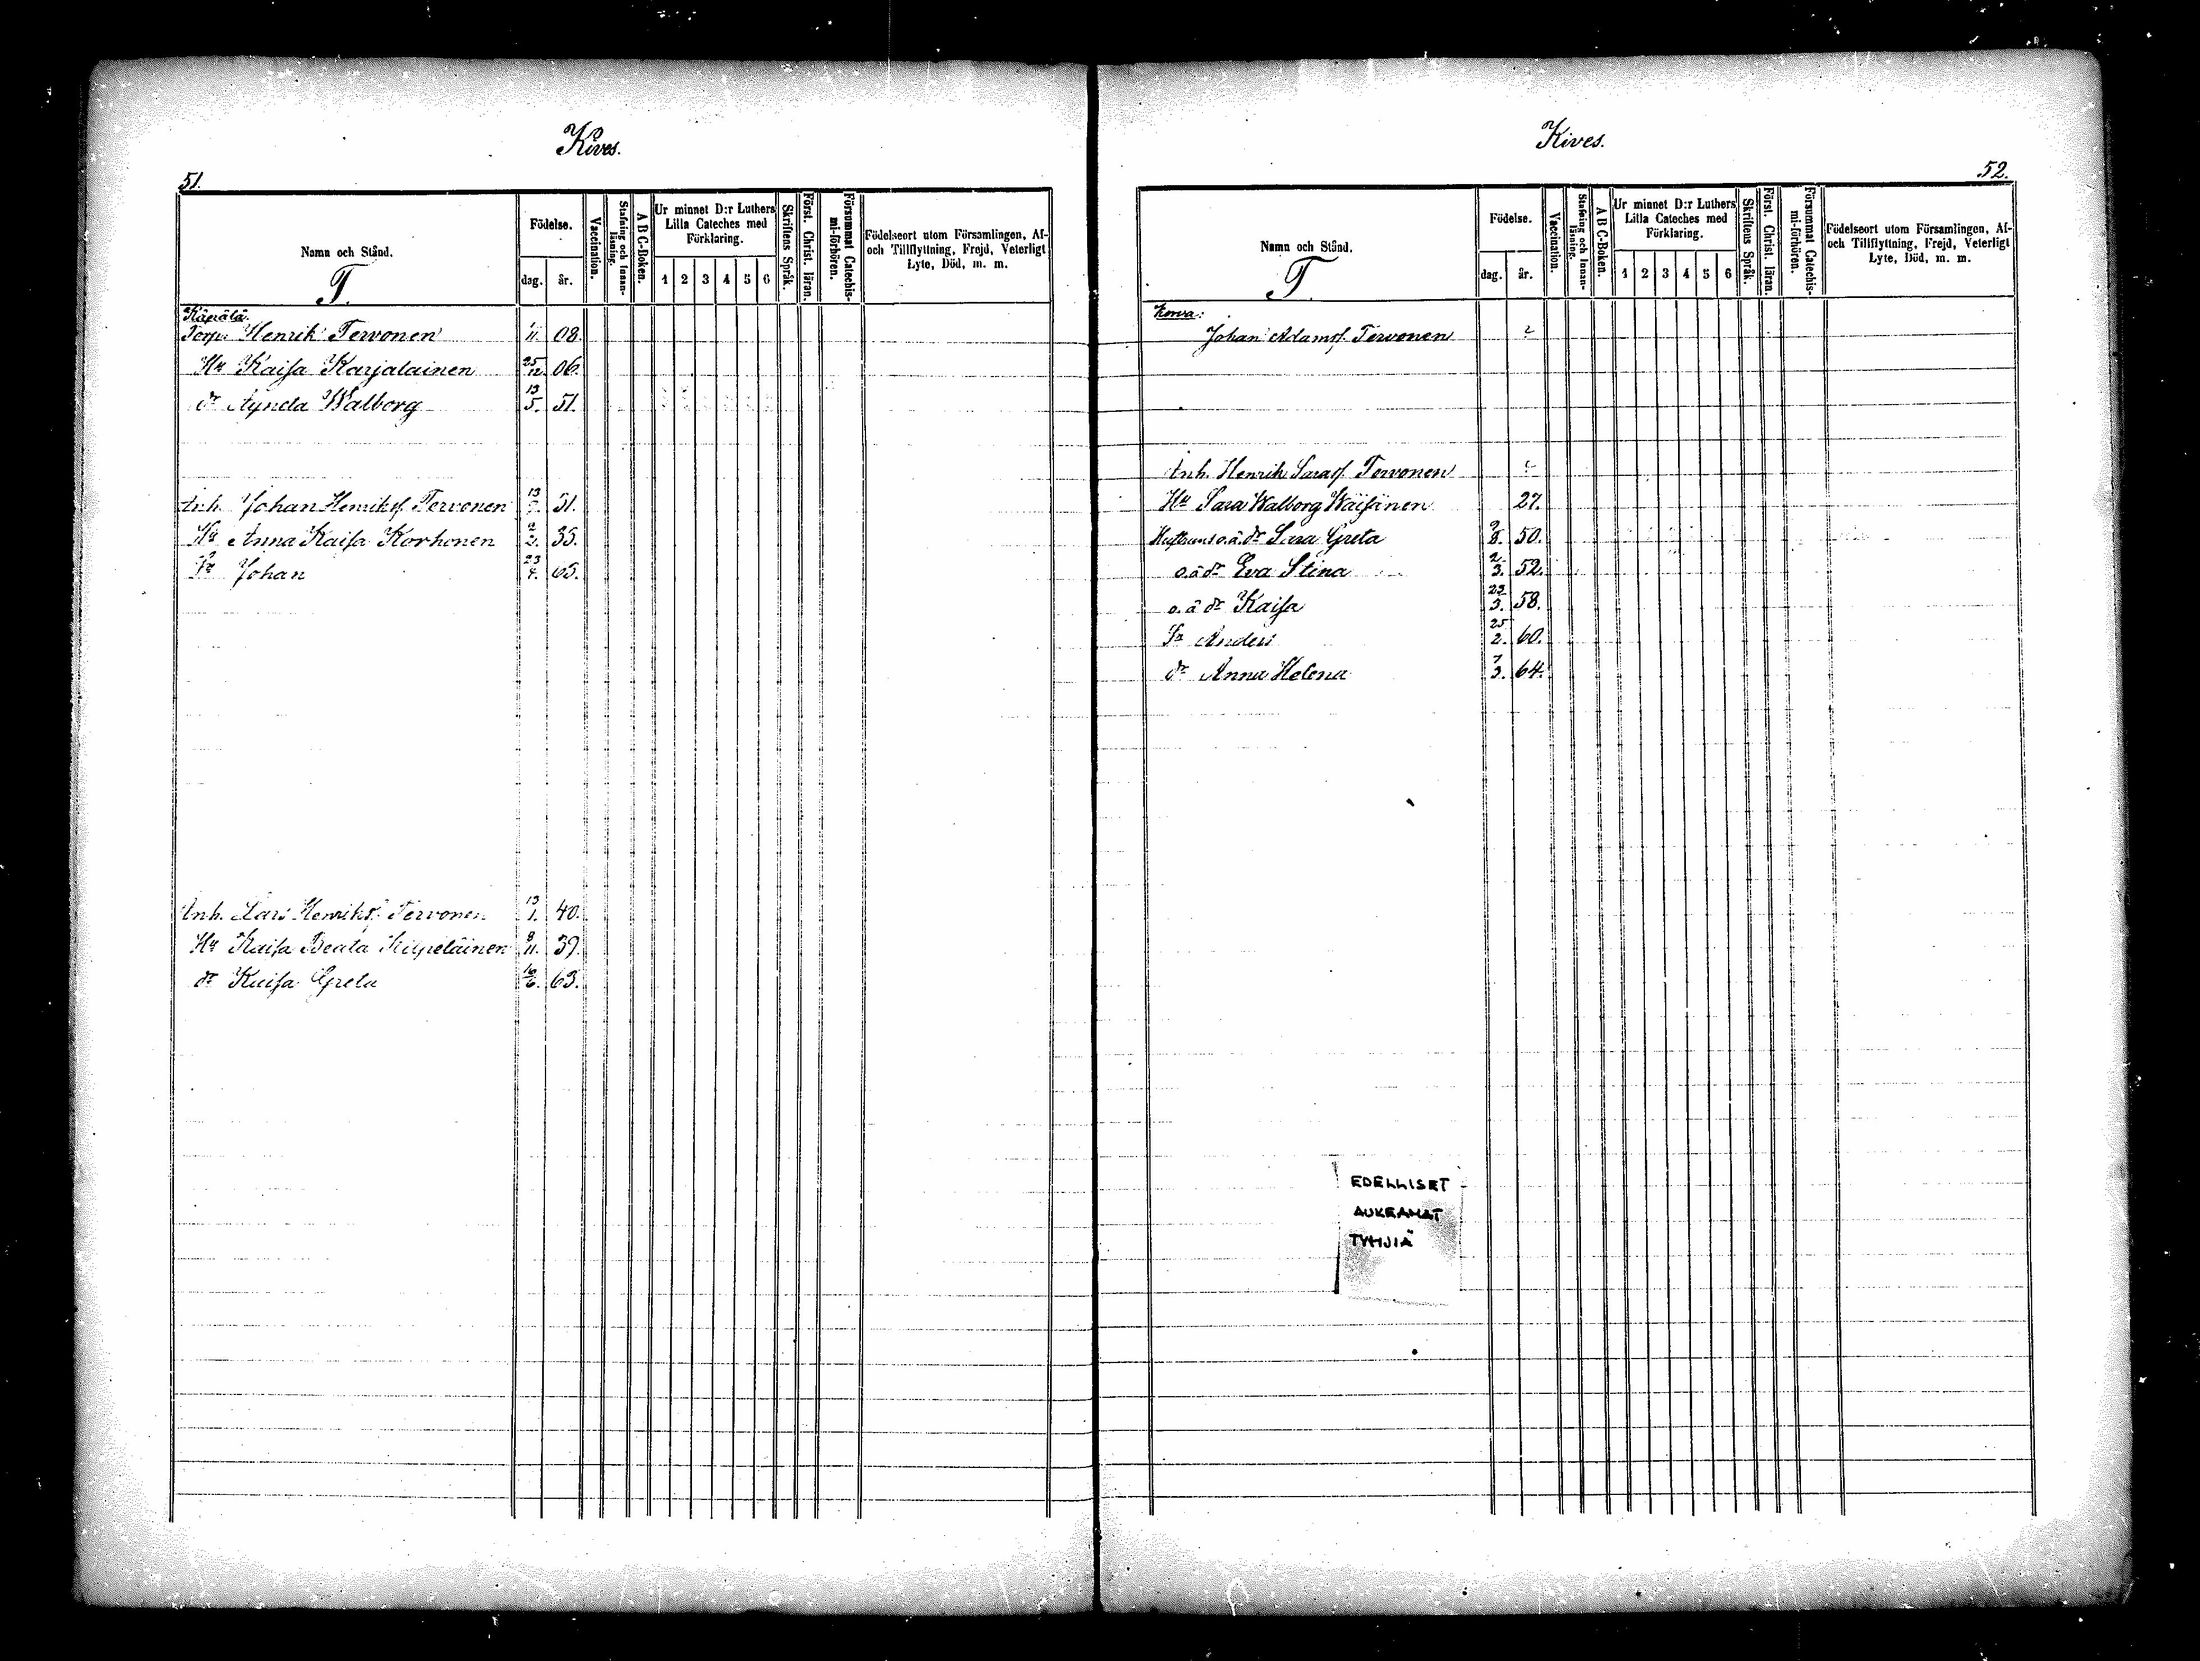 Kives.
51.
Namn och Stånd.
T.
Födelse.
dag. år.
Vaccination.
Stafning och Innan-läsning.
A B C-Boken.
Ur minnet D:r Luthers Lilla Cateches med Förklaring.
1 2 3 4 5 6
Skriftens Språk.
Först. Christ. läran.
Försummat Catechis-mi-förhören.
Födelseort utom Församlingen, Af- och Tillflyttning, Frejd, Veterligt Lyte, Död, m. m.
Käpälä.
Torp. Henrik Tervonen 11. 08.
Hu Kaisa Karjalainen 25/12. 06.
dr Agneta Walborg 13/5. 51.
Inh. Johan Henrikss. Tervonen 13 31.
Hu Anna Kaisa Korhonen 2/2. 35.
Sn Johan 23/4. 65.
Inh. Lars Henrikss. Tervonen 13/1. 40.
Hu Kaisa Beata Kilpeläinen 8/11. 39.
dr Kaisa Greta 16/6. 63.
Kives.
52.
Namn och Stånd.
T.
Födelse.
dag. år.
Vaccination.
Stafning och Innan-läsning.
A B C-Boken.
Ur minnet D:r Luthers Lilla Cateches med Förklaring.
1 2 3 4 5 6
Skriftens Språk.
Först. Christ. läran.
Försummat Catechis-mi-förhören.
Födelseort utom Församlingen, Af- och Tillflyttning, Frejd, Veterligt Lyte, Död, m. m.
Korva:
Johan Adamss. Tervonen ?
Inh. Henrik Sarass. Tervonen ?
Hu Sara Walborg Wäisänen 27.
Hustruns o.ä. dr Sara Greta 9/8. 50.
o.ä dr Eva Stina 2/3. 52.
o.ä dr Kaisa 22/3. 58.
Sn Anders 25/2. 60.
dr Anna Helena 7/3. 64.
EDELLISET
AUKEAMAT
TYHJIÄ